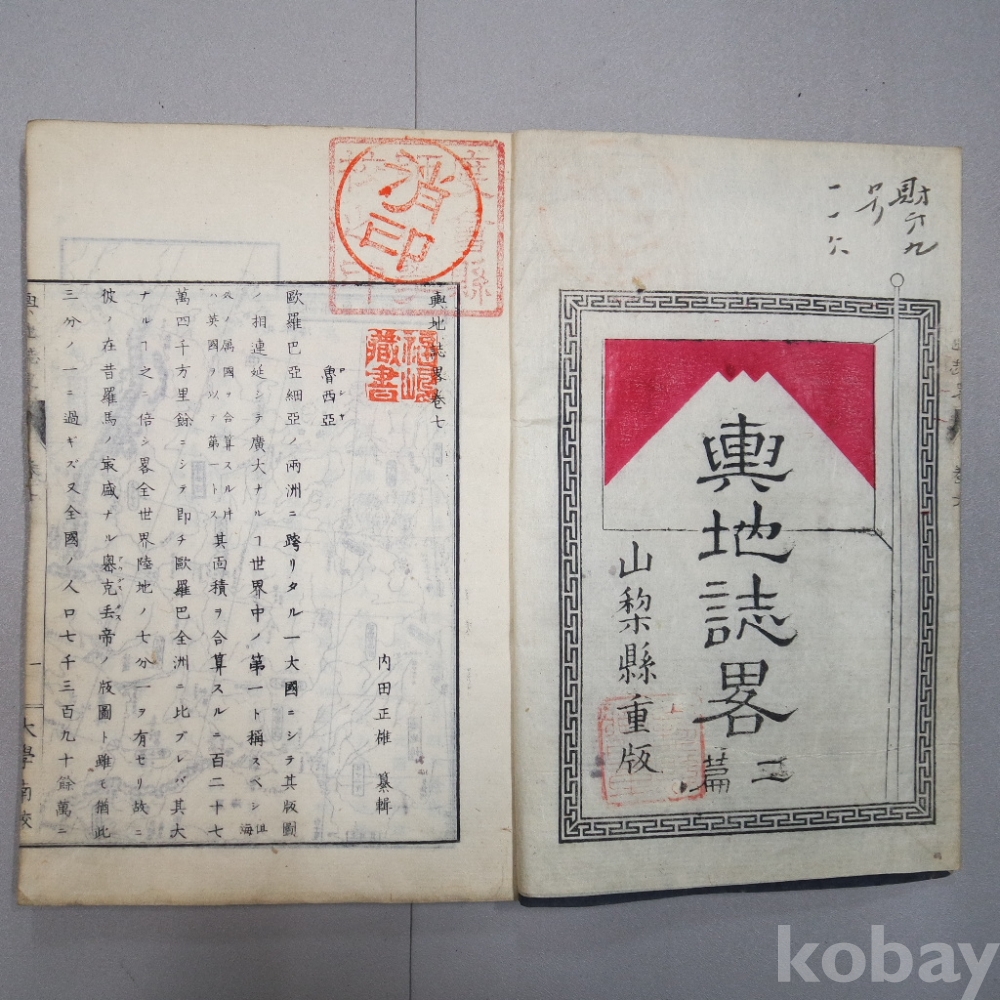 財六九
号
一一六
輿地誌畧
二篇
山梨縣重版
消印
福嶋藏書
輿地誌畧卷七
魯西亞
ロシヤ
內田正雄 纂輯
歐羅巴亞細亞ノ兩洲ニ跨リタル一大國ニシテ其版圖
ノ相連延シテ廣大ナルヿ世界中ノ第一ト稱スベシ
但海外ノ屬國ヲ合算スル片ハ英國ヲ以テ第一トス
其面積ヲ合算スルニ百二十七
萬四千方里餘ニシテ即チ歐羅巴全洲ニ比ブレバ其大
ナルヿ之ニ倍シ畧全世界陸地ノ七分一ヲ有セリ故ニ
彼ノ在昔羅馬ノ最盛ナル奧克丢帝ノ版圖ト雖モ猶此
三分ノ一ニ過ギズ又全國ノ人口七千三百九十餘萬ニ
一
大學南校
kobay